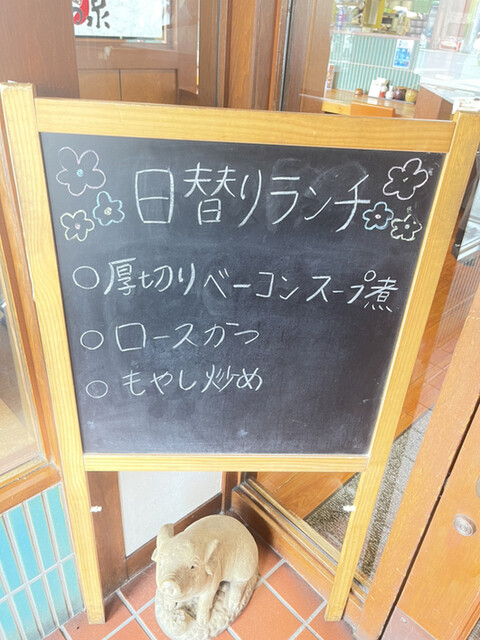 日替りランチ
○厚切りベーコンスープ煮
○ロースかつ
○もやし炒め